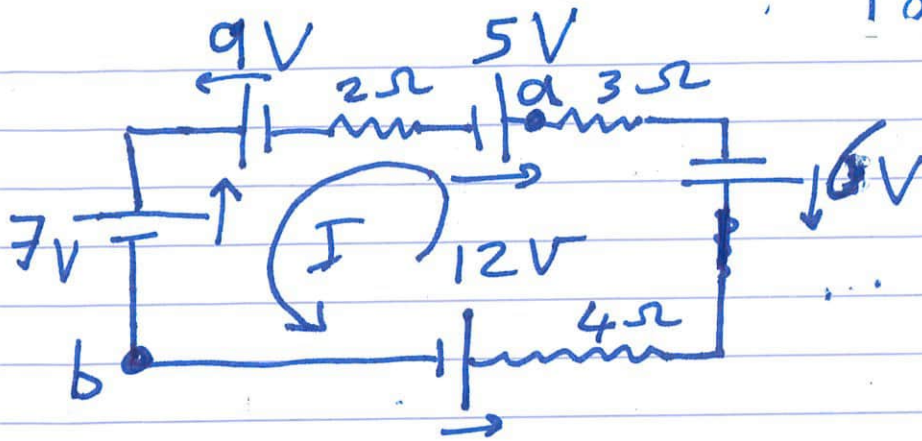 9V 5V
2Ω a 3Ω
7V 6V
I 12V
4Ω
b